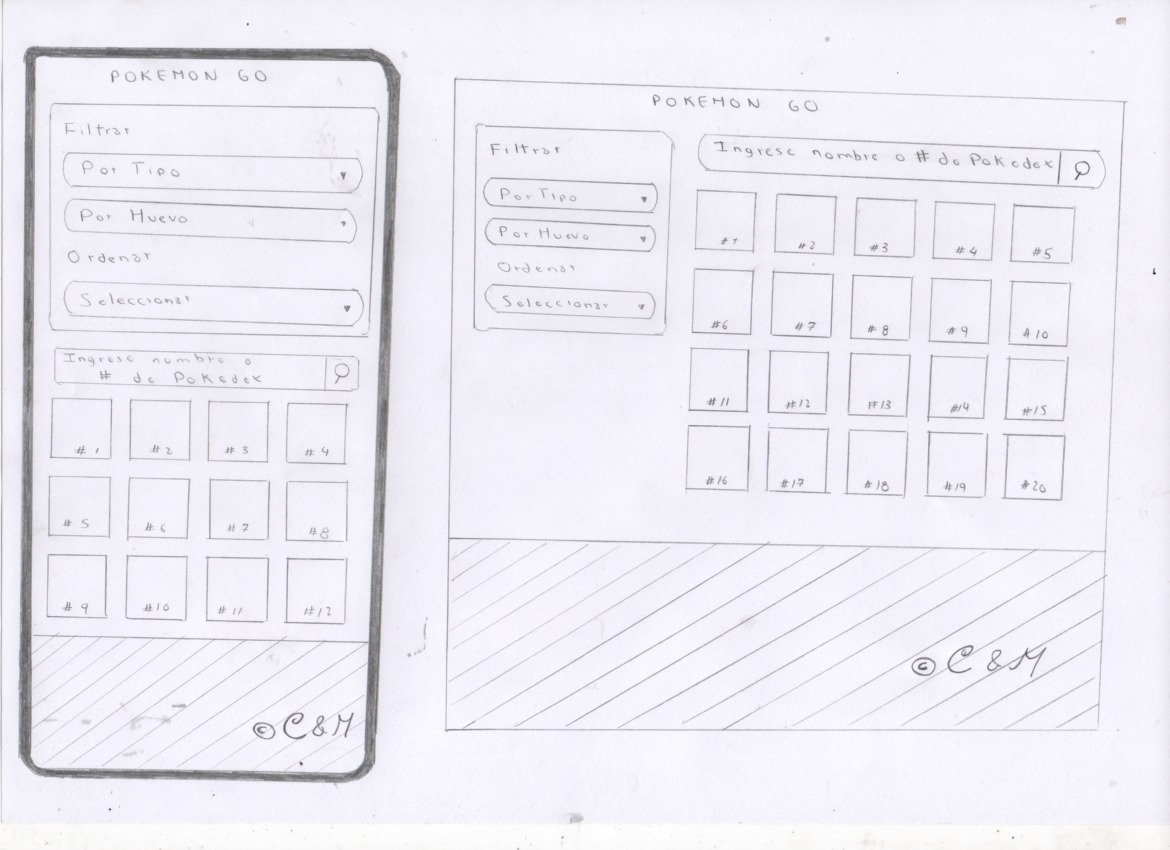 POKEMON GO
Filtrar
Por Tipo
Por Huevo
Ordenar
Seleccionar
Ingrese nombre o
# de Pokedex
#1 #2 #3 #4
#5 #6 #7 #8
#9 #10 #11 #12
© C & M
POKEMON GO
Filtrar
Por Tipo
Por Huevo
Ordenar
Seleccionar
Ingrese nombre o # de Pokedex
#1 #2 #3 #4 #5
#6 #7 #8 #9 #10
#11 #12 #13 #14 #15
#16 #17 #18 #19 #20
© C & M